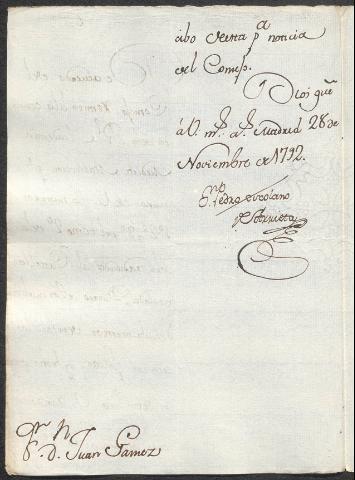 cibo Exenta pa noticia
del Consejo.
Dios gue
á V. ms. as. Madrid 28 de
Noviembre de 1792.
Dn. Pedro Escolano
de Arrieta
Sor. Dn. Juan Gamez